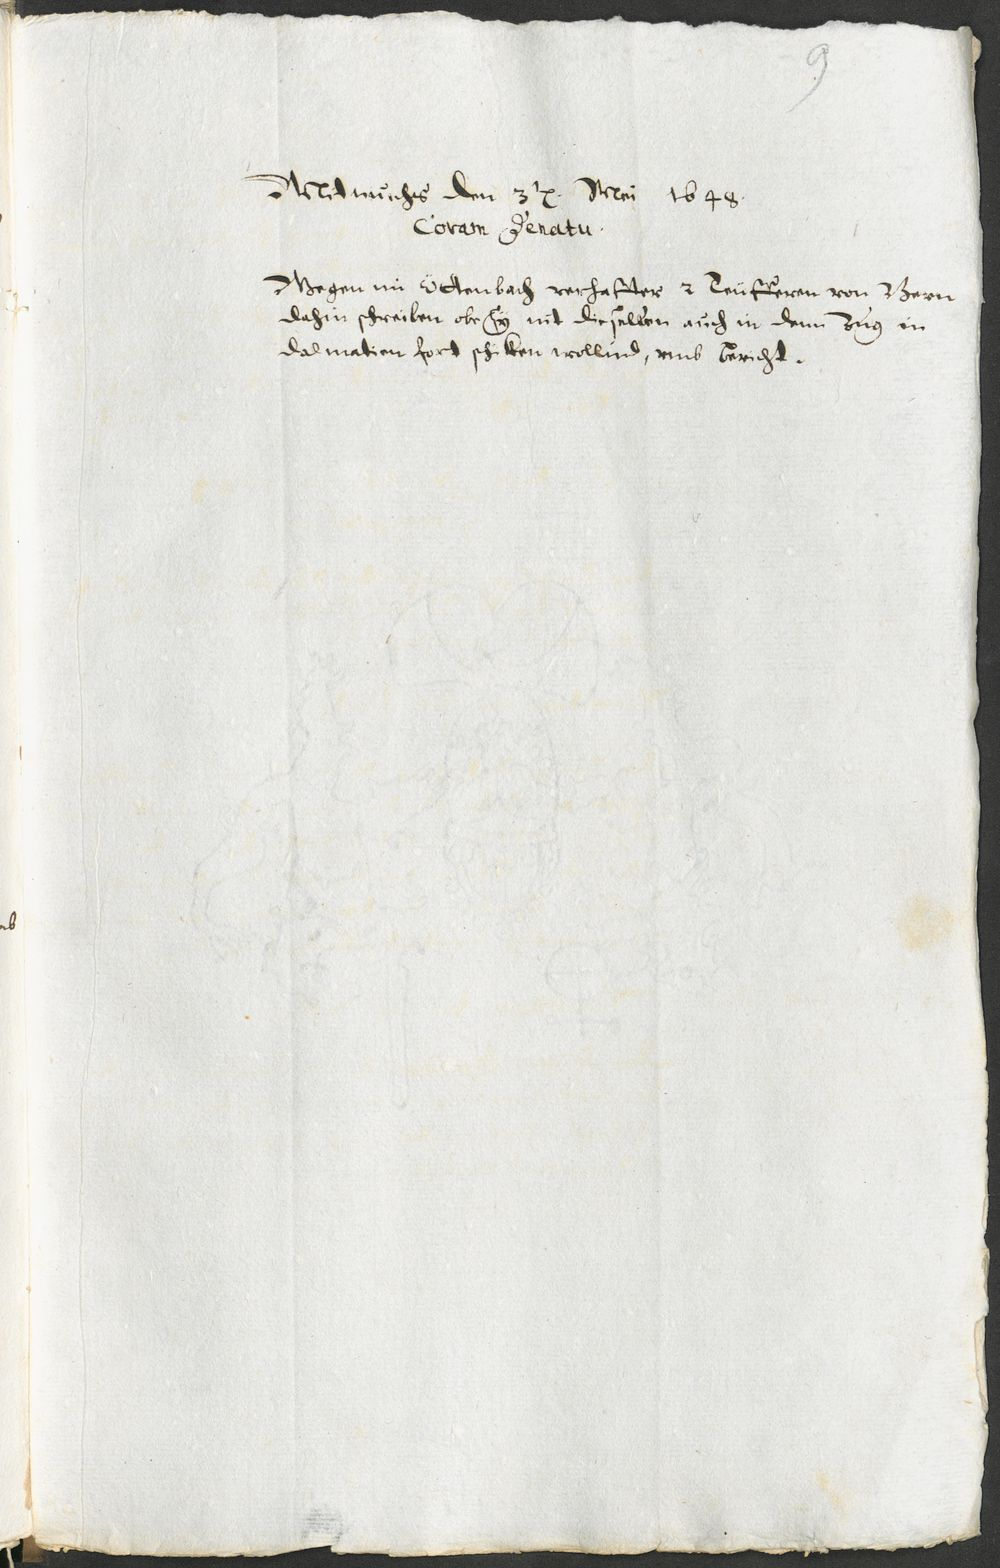 9
Mitwuchs den 3t Meÿ 1648.
Coram Senatu.
Wegen im Öttenbach verhaffter 2 Teüfferen von Bern
dahin schreiben ob Sÿ nit dieselben auch in dem Zug in
dalmatien fort schiken wollind, umb bericht.